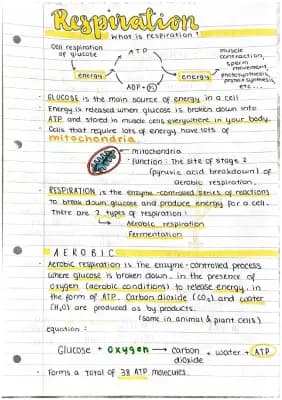 Respiration
What is respiration?
Cell respiration
of glucose
ATP
muscle
contraction,
sperm
movement,
photosynthesis,
protein synthesis,
etc...
energy
energy
ADP + Pi
· GLUCOSE is the main source of energy in a cell
· Energy is released when glucose is broken down into
ATP and stored in muscle cells everywhere in your body.
Cells that require lots of energy have lots of
mitochondria
mitochondria
· Function: The site of stage 2
(pyruvic acid breakdown) of
aerobic respiration.
· RESPIRATION is the enzyme-controlled series of reactions
to break down glucose and produce energy for a cell.
There are 2 types of respiration:
Aerobic respiration
Fermentation
AEROBIC
· Aerobic respiration is the enzyme-controlled process
where glucose is broken down in the presence of
oxygen (aerobic conditions) to release energy in
the form of ATP. Carbon dioxide (CO₂) and water
(H₂O) are produced as by products.
(same in animal & plant cells)
equation:
Glucose + oxygen → carbon dioxide + water + ATP
· Forms a total of 38 ATP molecules.